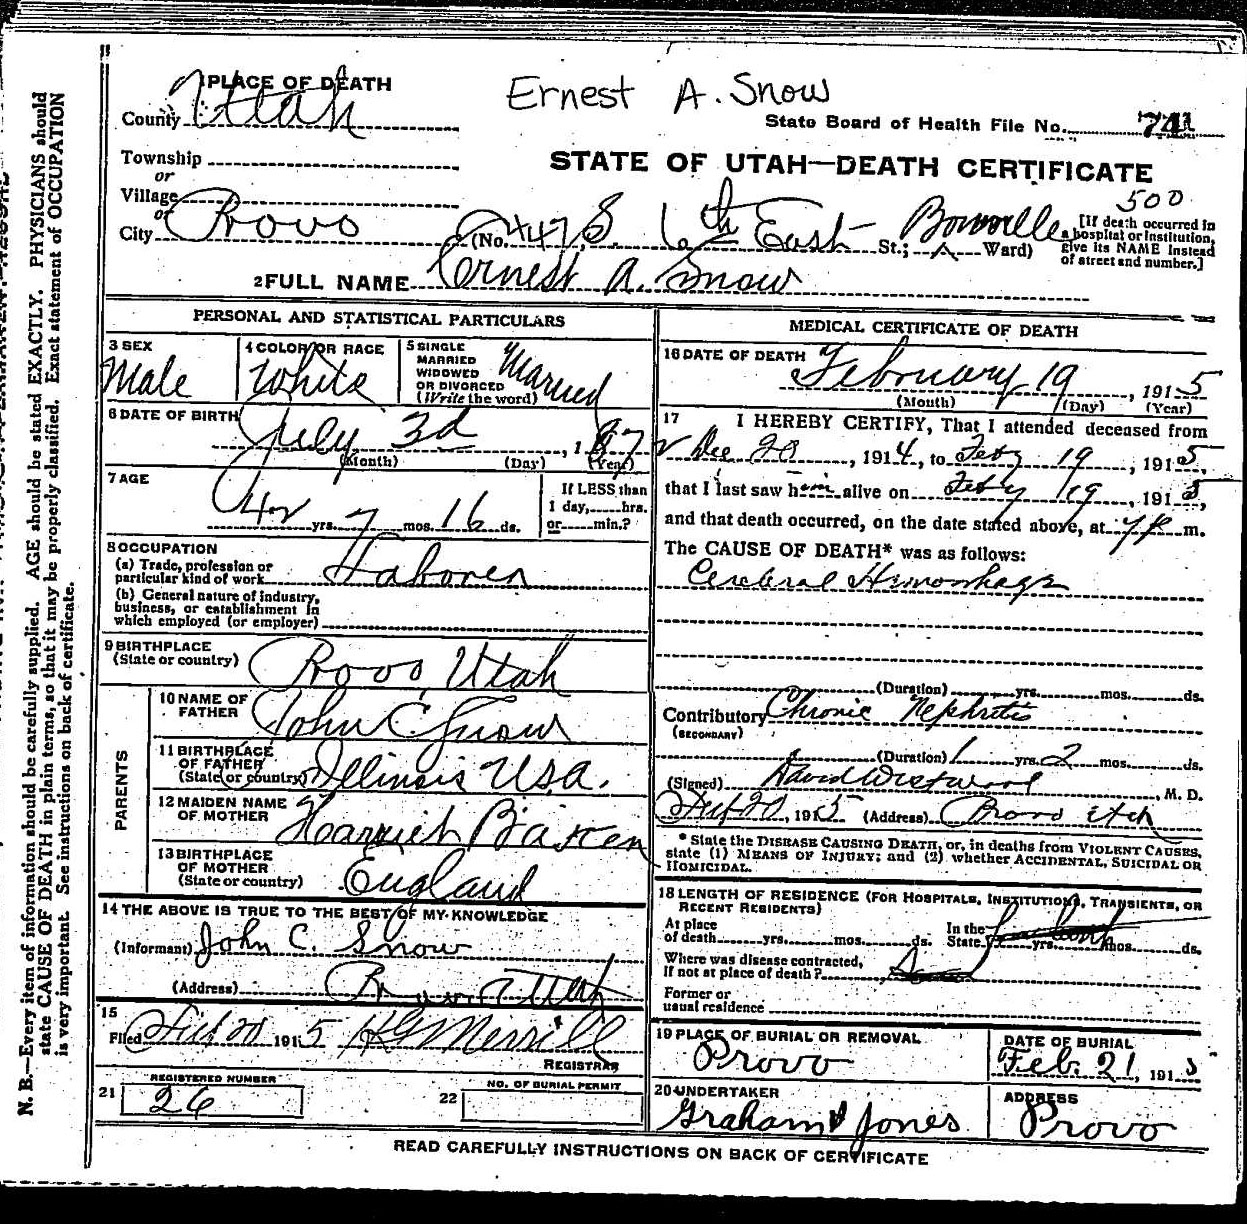 1 PLACE OF DEATH
Ernest A. Snow
County Utah
State Board of Health File No. 
Township
or
STATE OF UTAH—DEATH CERTIFICATE
Village
or
500
City Provo (No. 447 S. 6th East St.; Ward)
[If death occurred in a hospital or institution, give its NAME instead of street and number.]
2 FULL NAME Ernest A. Snow
PERSONAL AND STATISTICAL PARTICULARS
3 SEX
Male
4 COLOR OR RACE
White
5 SINGLE
MARRIED
WIDOWED
OR DIVORCED
(Write the word)
Married
6 DATE OF BIRTH
July 3d, 18
(Month) (Day) (Year)
7 AGE
42 yrs. 7 mos. 16 ds.
If LESS than
1 day, hrs.
or min.?
8 OCCUPATION
(a) Trade, profession or
particular kind of work Laborer
(b) General nature of industry,
business, or establishment in
which employed (or employer)
9 BIRTHPLACE
(State or country) Provo, Utah
PARENTS
10 NAME OF
FATHER John C. Snow
11 BIRTHPLACE
OF FATHER
(State or country) Illinois U.S.A.
12 MAIDEN NAME
OF MOTHER Harriet
13 BIRTHPLACE
OF MOTHER
(State or country) England
14 THE ABOVE IS TRUE TO THE BEST OF MY KNOWLEDGE
(Informant) John C. Snow
(Address) Provo Utah
15
Filed Feb 20 1915 H G Merrill
REGISTRAR
21 REGISTERED NUMBER
26
22 NO. OF BURIAL PERMIT
MEDICAL CERTIFICATE OF DEATH
16 DATE OF DEATH
February 19, 1915
(Month) (Day) (Year)
17 I HEREBY CERTIFY, That I attended deceased from
Dec 20, 1914, to Feby 19, 1915,
that I last saw him alive on Feby 19, 1915,
and that death occurred, on the date stated above, at 7 P m.
The CAUSE OF DEATH* was as follows:
Cerebral Hemorrhage
(Duration) yrs. mos. ds.
Contributory Chronic Nephritis
(SECONDARY)
(Duration) 1 yrs. 2 mos. ds.
(Signed) David Westwood, M. D.
Feb 20, 1915 (Address) Provo Utah
* State the DISEASE CAUSING DEATH, or, in deaths from VIOLENT CAUSES,
state (1) MEANS OF INJURY; and (2) whether ACCIDENTAL, SUICIDAL OR
HOMICIDAL.
18 LENGTH OF RESIDENCE (FOR HOSPITALS, INSTITUTIONS, TRANSIENTS, OR
RECENT RESIDENTS)
At place
of death yrs. mos. ds.
In the
State yrs. mos. ds.
Where was disease contracted,
if not at place of death?
Former or
usual residence
19 PLACE OF BURIAL OR REMOVAL
Provo
DATE OF BURIAL
Feb. 21, 1915
20 UNDERTAKER
Graham & Jones
ADDRESS
Provo
READ CAREFULLY INSTRUCTIONS ON BACK OF CERTIFICATE
N. B.—Every item of information should be carefully supplied. AGE should be stated EXACTLY. PHYSICIANS should
state CAUSE OF DEATH in plain terms, so that it may be properly classified. Exact statement of OCCUPATION
is very important. See instructions on back of certificate.